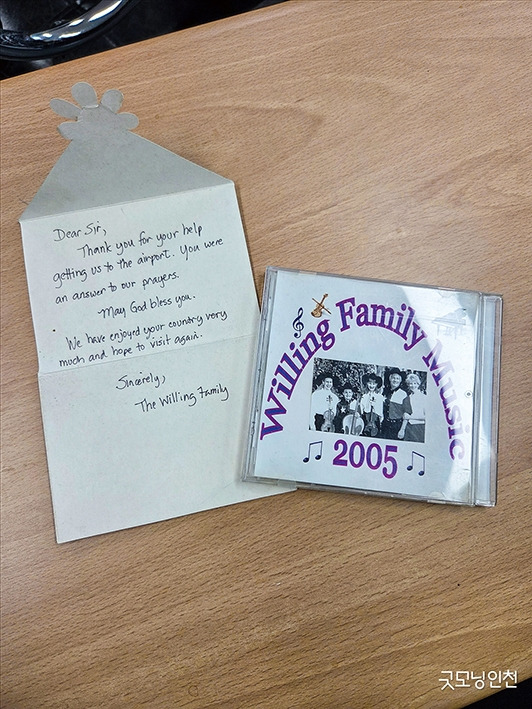 Dear Sir,
Thank you for your help
getting us to the airport. You were
an answer to our prayers.
May God bless you.
We have enjoyed your country very
much and hope to visit again.
Sincerely,
The Willing Family
Willing Family Music
2005
굿모닝인천